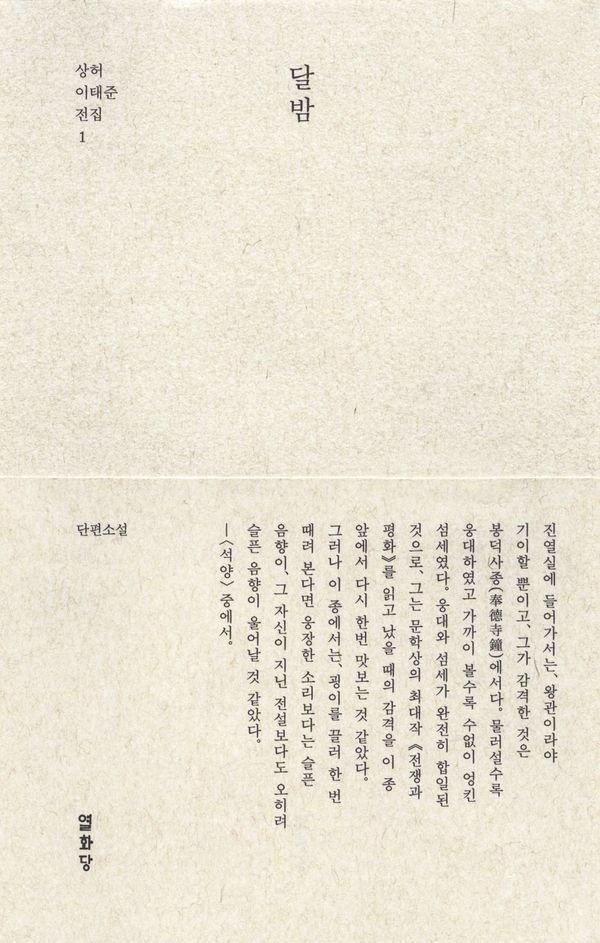 달밤
상허
이태준
전집
1
진열실에 들어가서는, 왕관이라야
기이할 뿐이고, 그가 감격한 것은
봉덕사종(奉德寺鐘)에서다. 물러설수록
웅대하였고 가까이 볼수록 수없이 엉킨
섬세였다. 웅대와 섬세가 완전히 합일된
것으로, 그는 문학상의 최대작 《전쟁과
평화》를 읽고 났을 때의 감격을 이 종
앞에서 다시 한번 맛보는 것 같았다.
그러나 이 종에서는, 굉이를 끌러 한 번
때려 본다면 웅장한 소리보다는 슬픈
음향이, 그 자신이 지닌 전설보다도 오히려
슬픈 음향이 울어날 것 같았다.
—〈석양〉 중에서.
단편소설
열화당